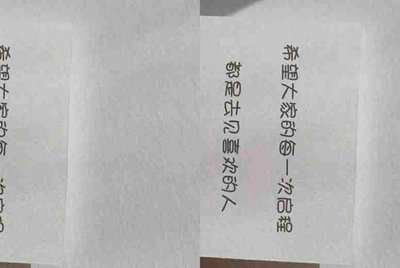 希望大家的每一次启程
希望大家的每一次启程
都是去见喜欢的人